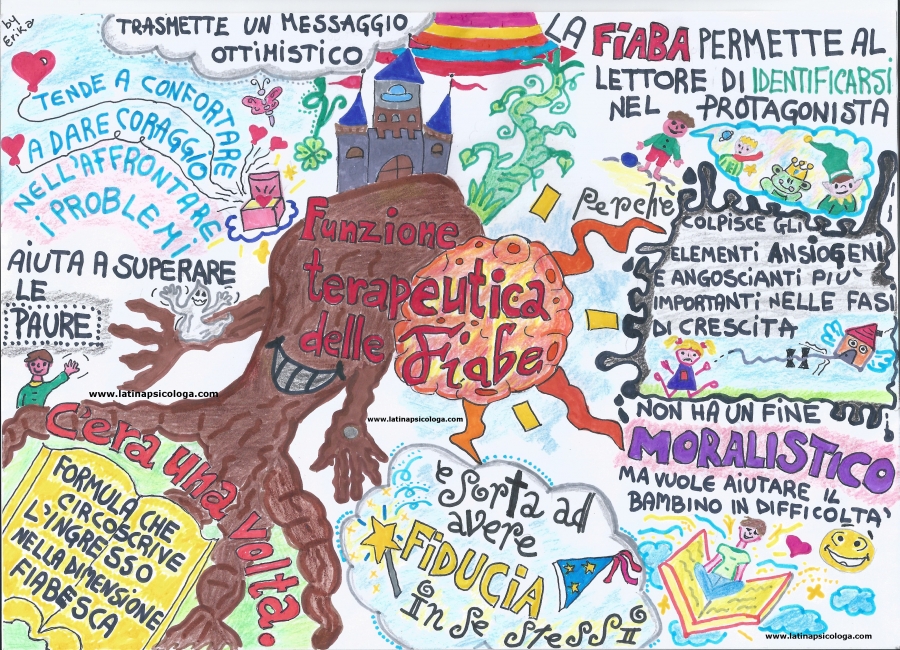 by
Erika
TRASMETTE UN MESSAGGIO
OTTIMISTICO
TENDE A CONFORTARE
A DARE CORAGGIO
NELL'AFFRONTARE
I PROBLEMI
AIUTA A SUPERARE
LE
PAURE
www.latinapsicologa.com
C'era una volta.
FORMULA CHE
CIRCOSCRIVE
L'INGRESSO
NELLA DIMENSIONE
FIABESCA
Funzione
terapeutica
delle
Fiabe
www.latinapsicologa.com
esorta ad
avere
FIDUCIA
In se stessI
LA FIABA PERMETTE AL
LETTORE DI IDENTIFICARSI
NEL PROTAGONISTA
perchè
COLPISCE GLI
ELEMENTI ANSIOGENI
E ANGOSCIANTI PIU'
IMPORTANTI NELLE FASI
DI CRESCITA
NON HA UN FINE
MORALISTICO
MA VUOLE AIUTARE IL
BAMBINO IN DIFFICOLTA'
www.latinapsicologa.com